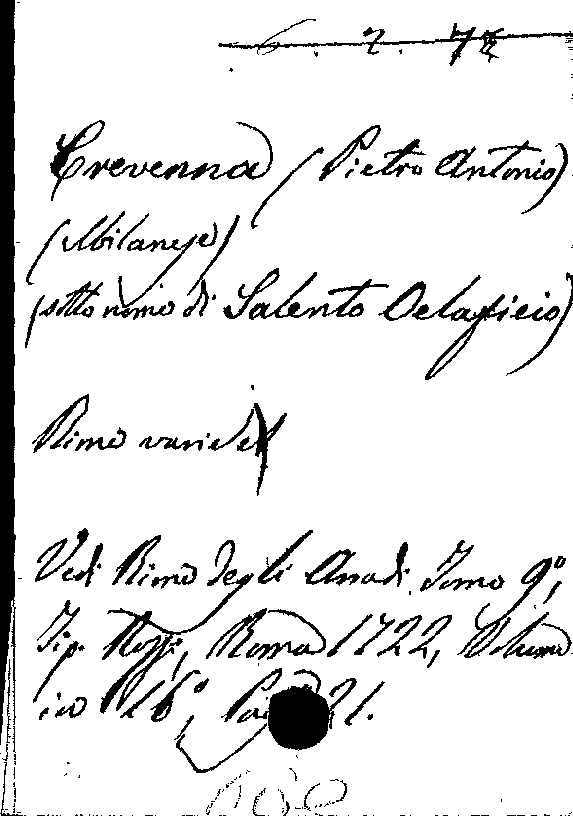 6. 2. 72
Crevenna (Pietro Antonio)
(Milanese)
(sotto nome di Salento
Rime varie
Vedi Rime degli Arcadi. Tomo 9º,
Tip. Rossi, Roma 1722, Volume
in 16º, Pag 21.